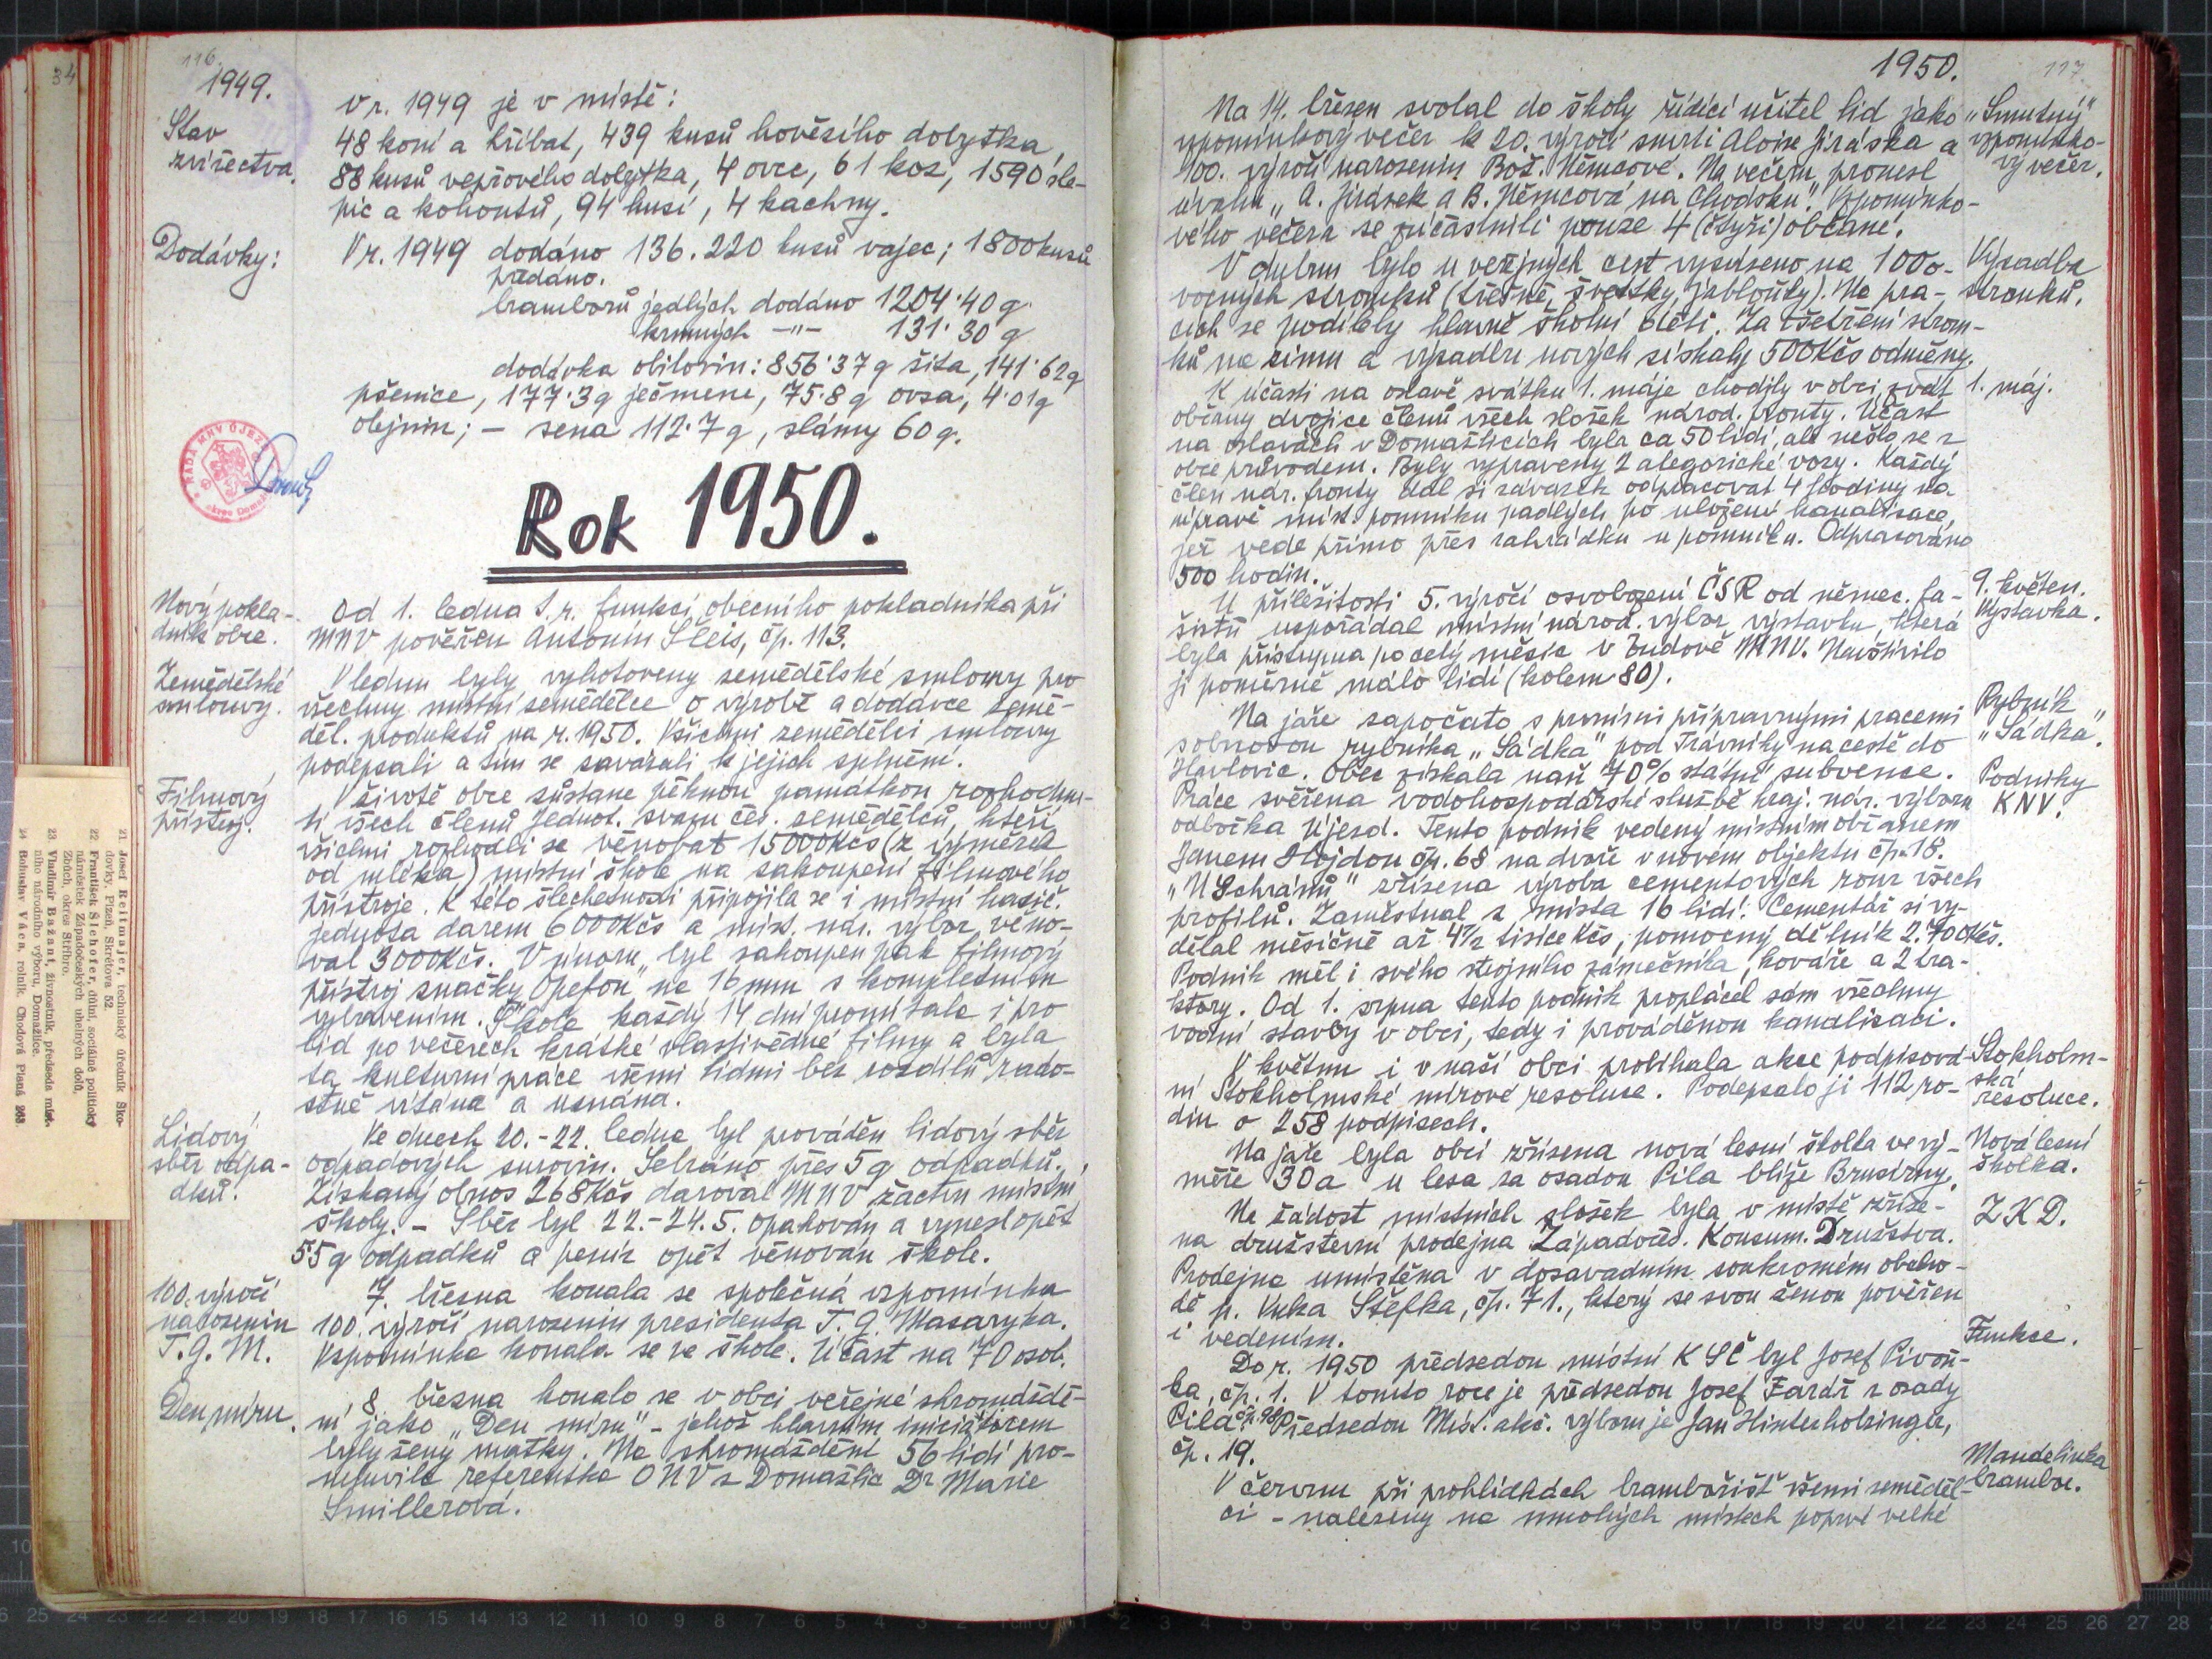 116.
1949.
Stav
zvířectva.
V r. 1949 je v místě:
48 koní a hříbat, 439 kusů hovězího dobytka,
88 kusů vepřového dobytka, 4 ovce, 61 koz, 1590 sle-
pic a kohoutů, 94 husí, 4 kachny.
Dodávky:
V r. 1949 dodáno 136.220 kusů vajec; 1800 kusů
předáno.
bramborů jedlých dodáno 1204·40 q
krmných —"— 131·30 q
dodávka obilovin: 856·37 q žita, 141·62 q
pšenice, 177·3 q ječmene, 75·8 q ovsa, 4·01 q
olejnin; — sena 112·7 q, slámy 60 q.
RADA MNV ÚJEZD
okres Domaž
Rok 1950.
Nový pokla-
dník obce.
Od 1. ledna t. r. funkcí obecního pokladníka při
MNV pověřen Antonín Sleis, čp. 113.
Zemědělské
smlouvy.
V lednu byly vyhotoveny zemědělské smlouvy pro
všechny místní zemědělce o výrobě a dodávce země-
děl. produktů na r. 1950. Všichni zemědělci smlouvy
podepsali a tím se zavázali k jejich splnění.
Filmový
přístroj.
V životě obce zůstane pěknou památkou rozhodnu-
tí všech členů Jednot. svazu čes. zemědělců, kteří
všichni rozhodli se věnovat 15000 Kčs (z výměrek
od mléka) místní škole na zakoupení filmového
přístroje. K této šlechetnosti připojila se i místní hasič.
jednota darem 6000 Kčs a míst. nár. výbor věno-
val 3000 Kčs. V únoru byl zakoupen pak filmový
přístroj značky „Opefon" na 16 mm s kompletním
vybavením. Škola každý 14 dní promítala i pro
lid po večerech krátké vlastivědné filmy a byla
ta kulturní práce všemi lidmi bez rozdílů rado-
stně vítána a uznána.
Lidový
sběr odpa-
dků.
Ve dnech 20.-22. ledna byl prováděn lidový sběr
odpadových surovin. Sebráno přes 5 q odpadků.
Získaný obnos 268 Kčs daroval MNV žactvu místní
školy. — Sběr byl 22.-24. 5. opakován a vynesl opět
55 q odpadků a peníz opět věnován škole.
100. výročí
narozenin
T. G. M.
7. března konala se společná vzpomínka
100. výročí narozenin presidenta T. G. Masaryka.
Vzpomínka konala se ve škole. Účast na 70 osob.
Den míru.
8. března konalo se v obci veřejné shromáždě-
ní jako „Den míru" – jehož hlavním iniciátorem
byly ženy matky. Na shromáždění 56 lidí pro-
mluvila referentka ONV z Domažlic Dr Marie
Smillerová.
21 Josef Reitmajer, technický úředník Ško-
dovky, Plzeň, Skrétova 52.
22 František Šlehofer, důlní, sociálně politický
náměstek Západočeských uhelných dolů,
Zbůch, okres Stříbro.
23 Vladimír Bažant, živnostník, předseda míst-
ního národního výboru, Domažlice.
24 Bohuslav Vácn, rolník, Chodová Planá 263.
34
1950.
117
Na 14. březen svolal do školy řídící učitel lid jako
vzpomínkový večer k 20. výročí smrti Aloise Jiráska a
100. výročí narozenin Bož. Němcové. Na večeru pronesl
úvahu „A. Jirásek a B. Němcová na Chodsku". Vzpomínko-
vého večera se zúčastnili pouze 4 (čtyři) občané.
„Smutný"
vzpomínko-
vý večer.
V dubnu bylo u veřejných cest vysázeno na 100 o-
vocných stromků (třešně, švestky, jabloňky). Na pra-
cích se podílely hlavně školní děti. Za ošetření strom-
ků na zimu a výsadbu nových získaly 500 Kčs odměny.
Výsadba
stromků.
K účasti na oslavě svátku 1. máje chodily v obci zvát
občany dvojice členů všech složek národ. fronty. Účast
na oslavách v Domažlicích byla ca 50 lidí, ale nešlo se z
obce průvodem. Byly vypraveny 2 alegorické vozy. Každý
člen nár. fronty dal si závazek odpracovat 4 hodiny na
úpravě míst. pomníku padlých po uložení kanalisace,
jež vede přímo přes zahrádku u pomníku. Odpracováno
500 hodin.
1. máj.
U příležitosti 5. výročí osvobození ČSR od němec. fa-
šistů uspořádal místní národ. výbor výstavku, která
byla přístupna po celý měsíc v budově MNV. Navštívilo
ji poměrně málo lidí (kolem 80).
9. květen.
Výstavka.
Na jaře započato s prvními přípravnými pracemi
s obnovou rybníka „Sádka" pod Trávníky na cestě do
Havlovic. Obec získala naň 70% státní subvence.
Práce svěřena vodohospodářské službě kraj. nár. výboru
odbočka Újezd. Tento podnik vedený místním občanem
Janem Hojdou čp. 68 na dvoře v novém objektu čp. 18.
„U Schránů" zřízena výroba cementových rour všech
profilů. Zaměstnal z místa 16 lidí. Cementář si vy-
dělal měsíčně až 4½ tisíce Kčs, pomocný dělník 2.700 Kčs.
Podnik měl i svého strojního zámečníka, kováře a 2 tra-
ktory. Od 1. srpna tento podnik proplácel sám všechny
vodní stavby v obci, tedy i prováděnou kanalisaci.
Rybník
„Sádka".
Podniky
KNV.
V květnu i v naší obci probíhala akce podpisová-
ní Stokholmské mírové resoluce. Podepsalo ji 112 ro-
din o 258 podpisech.
Stokholm-
ská
resoluce.
Na jaře byla obcí zřízena nová lesní školka ve vý-
měře 30 a u lesa za osadou Pila blíže Brusírny.
Nová lesní
školka.
Na žádost místních složek byla v místě zříze-
na družstevní prodejna Západočes. Konsum. Družstva.
Prodejna umístěna v dosavadním soukromém obcho-
dě p. Vuka Štěfka, čp. 71., který se svou ženou pověřen
i vedením.
Z K D.
Do r. 1950 předsedou místní KSČ byl Josef Pivoň-
ka, čp. 1. V tomto roce je předsedou Josef Fardž z osady
Pila čp. 98. Předsedou Míst. akč. výboru je Jan Hinterholzingle,
čp. 19.
Funkce.
V červnu při prohlídkách bramborišť všemi zeměděl-
ci – nalezeny na mnohých místech poprvé velké
Mandelinka
brambor.